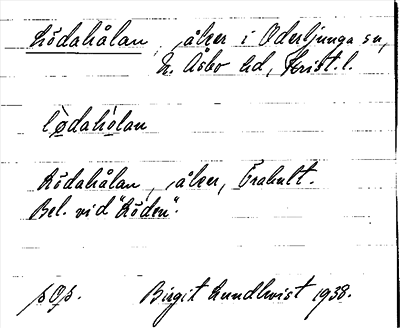 Lödahålan, åker i Oderljunga sn,
N. Åsbo hd, Krist. l.
lø̀dahòlan
Lödahålan, åker, Frahult.
Bel. vid "Löden".
pOp. Birgit Lundkvist 1938.